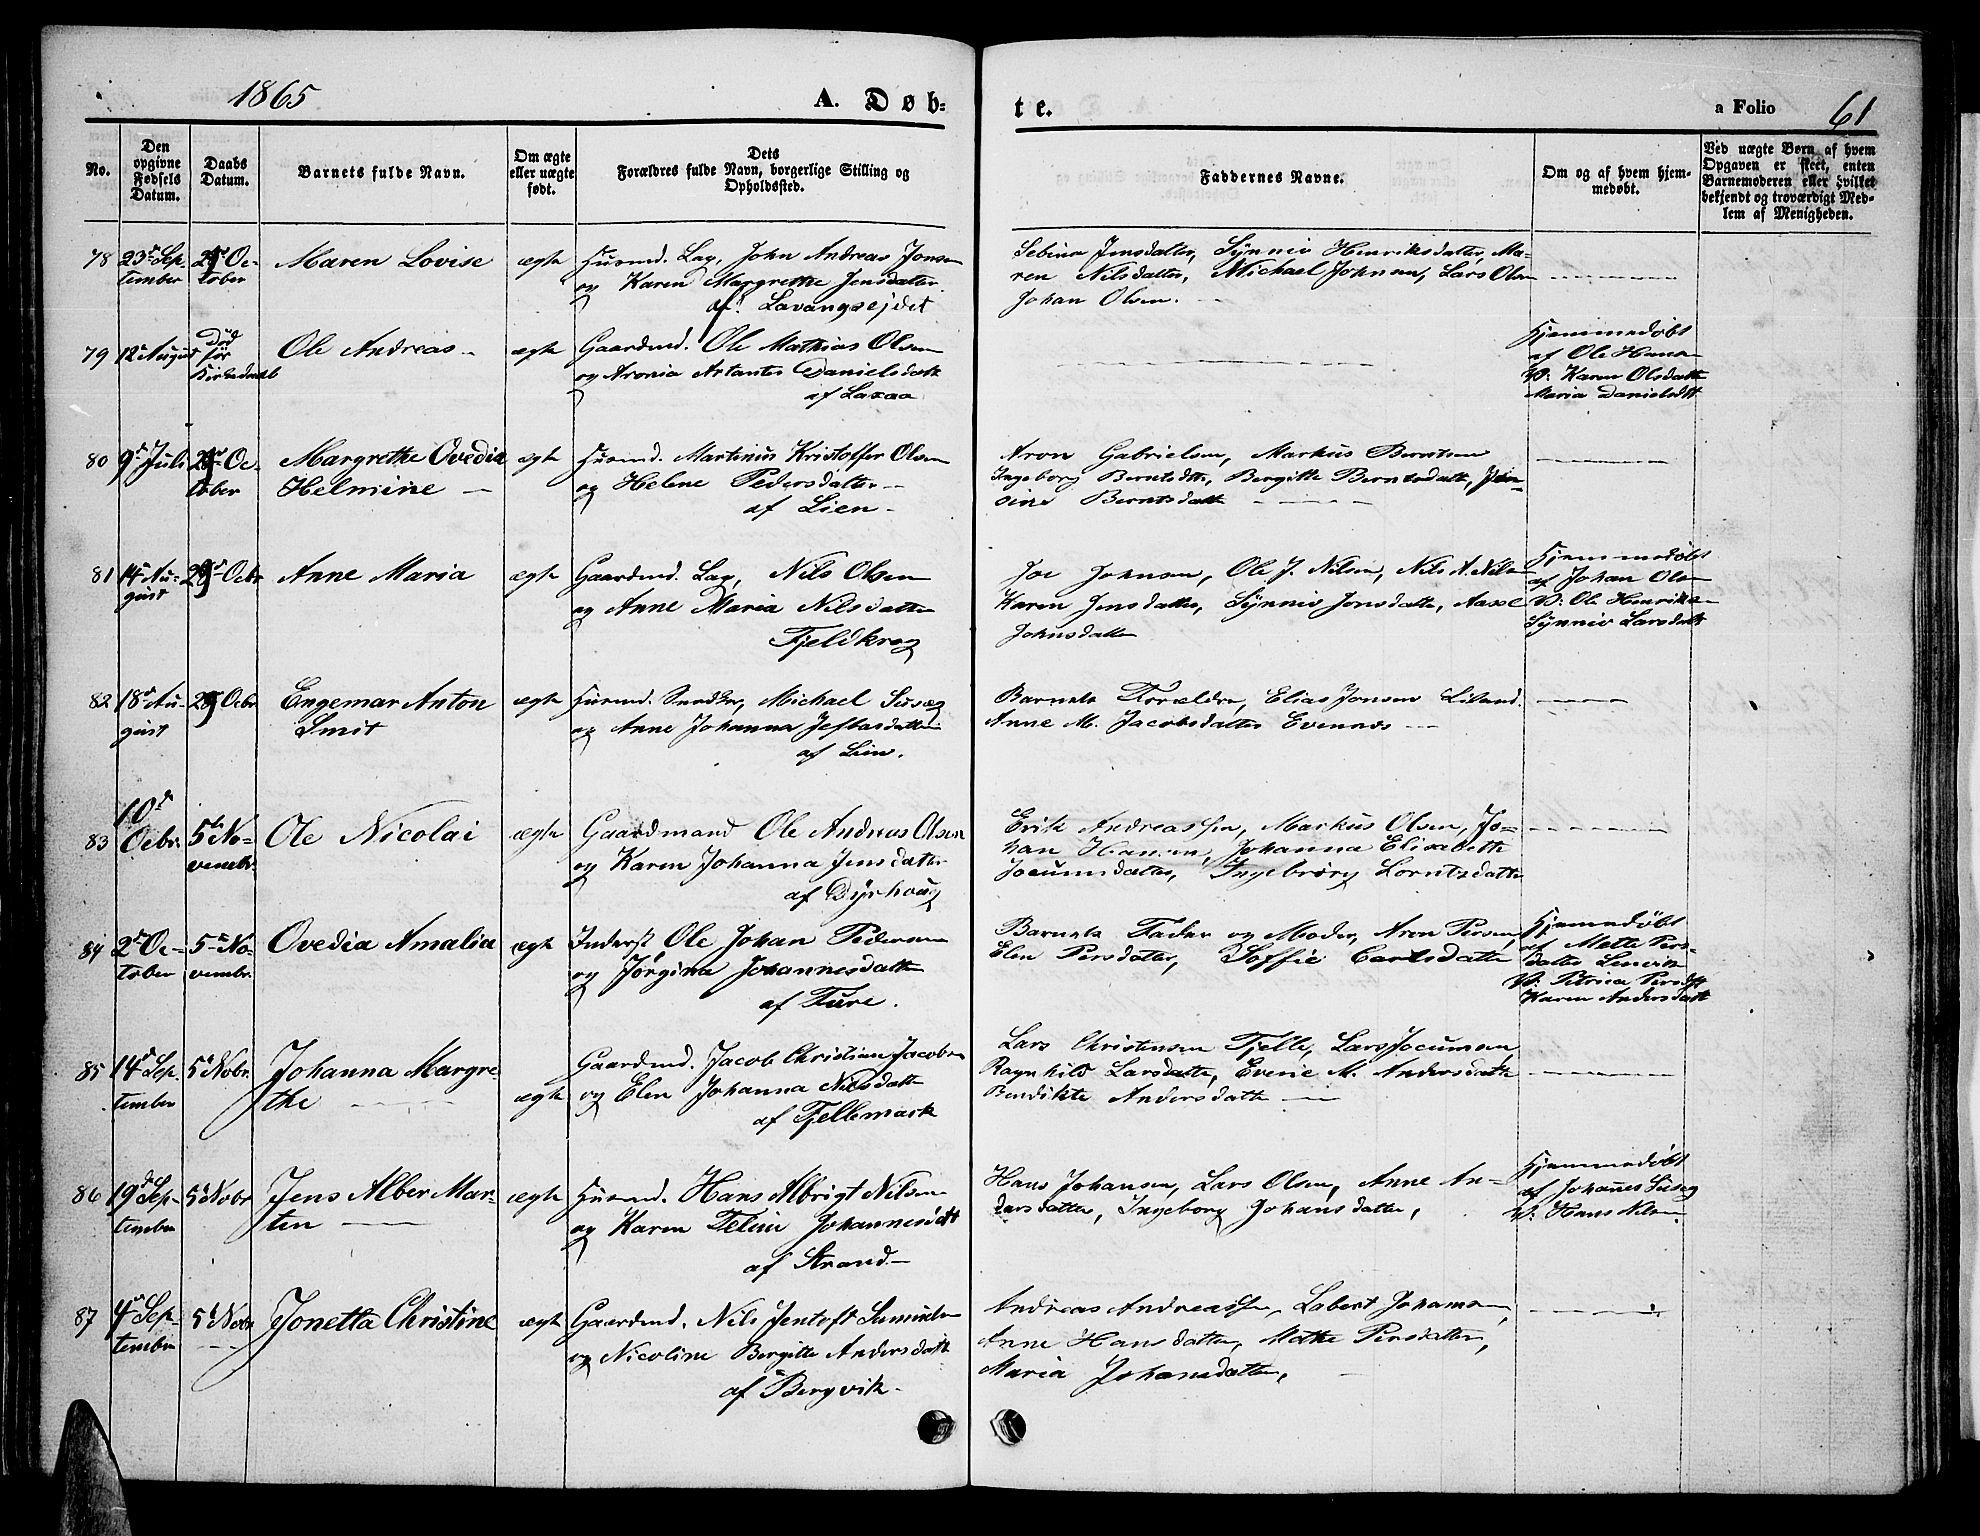 1865
A. Døb=
te.
a Folio 61
No.
Den opgivne Fødsels Datum.
Daabs Datum.
Barnets fulde Navn.
Om ægte eller uægte født.
Dets Forældres fulde Navn, borgerlige Stilling og Opholdssted.
Faddernes Navne.
Om og af hvem hjem-
medøbt.
Ved uægte Børn af hvem
Opgaven er skeet, enten
Barnemoderen eller hvilket
bekjendt og troværdigt Med-
lem af Menigheden.
78 23de Sep- Oc- Maren Lovise ægte Husmd. Lap, John Andreas Jonsen
tember tober og Karen Margrethe Jensdatter
af Lavangsejdet
Sebina Jensdatter, Synniv Henriksdatter, Ma-
ren Nilsdatter, Michael Johnsen, Lars Olsen
Johan Olsen.
79 12te August Død Ole Andreas ægte Gaardmd. Ole Mathias Olsen
før og Aronia Danielsdatt
af Laxaa
Hjemmedøbt
af Ole Hansen
V: Karen Olsdatt
Maria Danielsdtt
80 9de Juli Oc- Margrethe Ovedia ægte Husmd. Martinus Kristoffer Olsen
tober Helmine og Helene Pedersdatter
af Lien
Aron Gabrielsen, Markus Berntsen
Ingeborg Berntsdtr, Bergitte Berntsdatt,
Berntsdatt
81 14de Au- Octbr Anne Maria ægte Gaardmd. Lap, Nils Olsen
gust og Anne Maria Nilsdatter
Fjeldkrog
Joe Johnsen, Ole J. Nilsen, Nils A. Nilsen
Karen Jensdatter, Synniv Jonsdatte,
Johnsdatter
Hjemmedøbt
af Johan Olsen
V: Ole Henriksen
Synniv Larsdatt
82 18de Au- Octbr Engemar Anton ægte Husmd. Michael
gust Smit og Anne Johanna
af Lien.
Barnets Forældre, Elias Jonsen Liland
Anne M. Jacobsdatter Evenæs
83 10de Octbr. 5te No- Ole Nicolai ægte Gaardmand Ole Andreas Olsen
vembr. og Karen Johanna Jensdatter
af Dyrhoug
Erik Andreassen, Markus Olsen, Jo-
han Hansen, Johanna Elisabeth
Jocumsdatter, Ingebrørg Lorntsdatter
84 2de Oc- 5te No- Ovedia Amalia ægte Inderst Ole Johan Pedersen
tober vembr. og Jørgina Johannesdatter
af Fure.
Barnets Fader og Moder, Aron Persen,
Elen Persdatter, Soffie Carlsdatter
Hjemmedøbt
af Mette Pers-
datter
V: Petrica Persdtt
Karen Andersdatt
85 14de Sep- 5te Novbr. Johanna Margre- Gaardmd. Jacob Christian Jacobsen
tember the ægte og Elen Johanna Nilsdatter
af Fjellemark
Lars Christensen Fjelle, Lars Jocumsen
Ragnhild Larsdatter, Everie M. Andersdatter
Bendikte Andersdatter
86 19de Sep- 5te Novbr Jens Alber Mar- ægte Husmd. Hans Albrigt Nilsen
tember ten og Karen Johannesdatt
af Strand
Hans Johansen, Lars Olsen, Anne An-
dersdatter, Ingeborg Johansdatter,
Hjemmedøbt
af Johannes
V: Hans Nilsen
87 4de Sep- 5te Novbr. Jonetta Christine ægte Gaardmd. Nils Jentoft
tember og Nicoline Bergitte Andersdatt
af Bergvik
Andreas Andreassen, Johansen,
Anne Hansdatter, Mette Persdatter,
Maria Johansdatter,